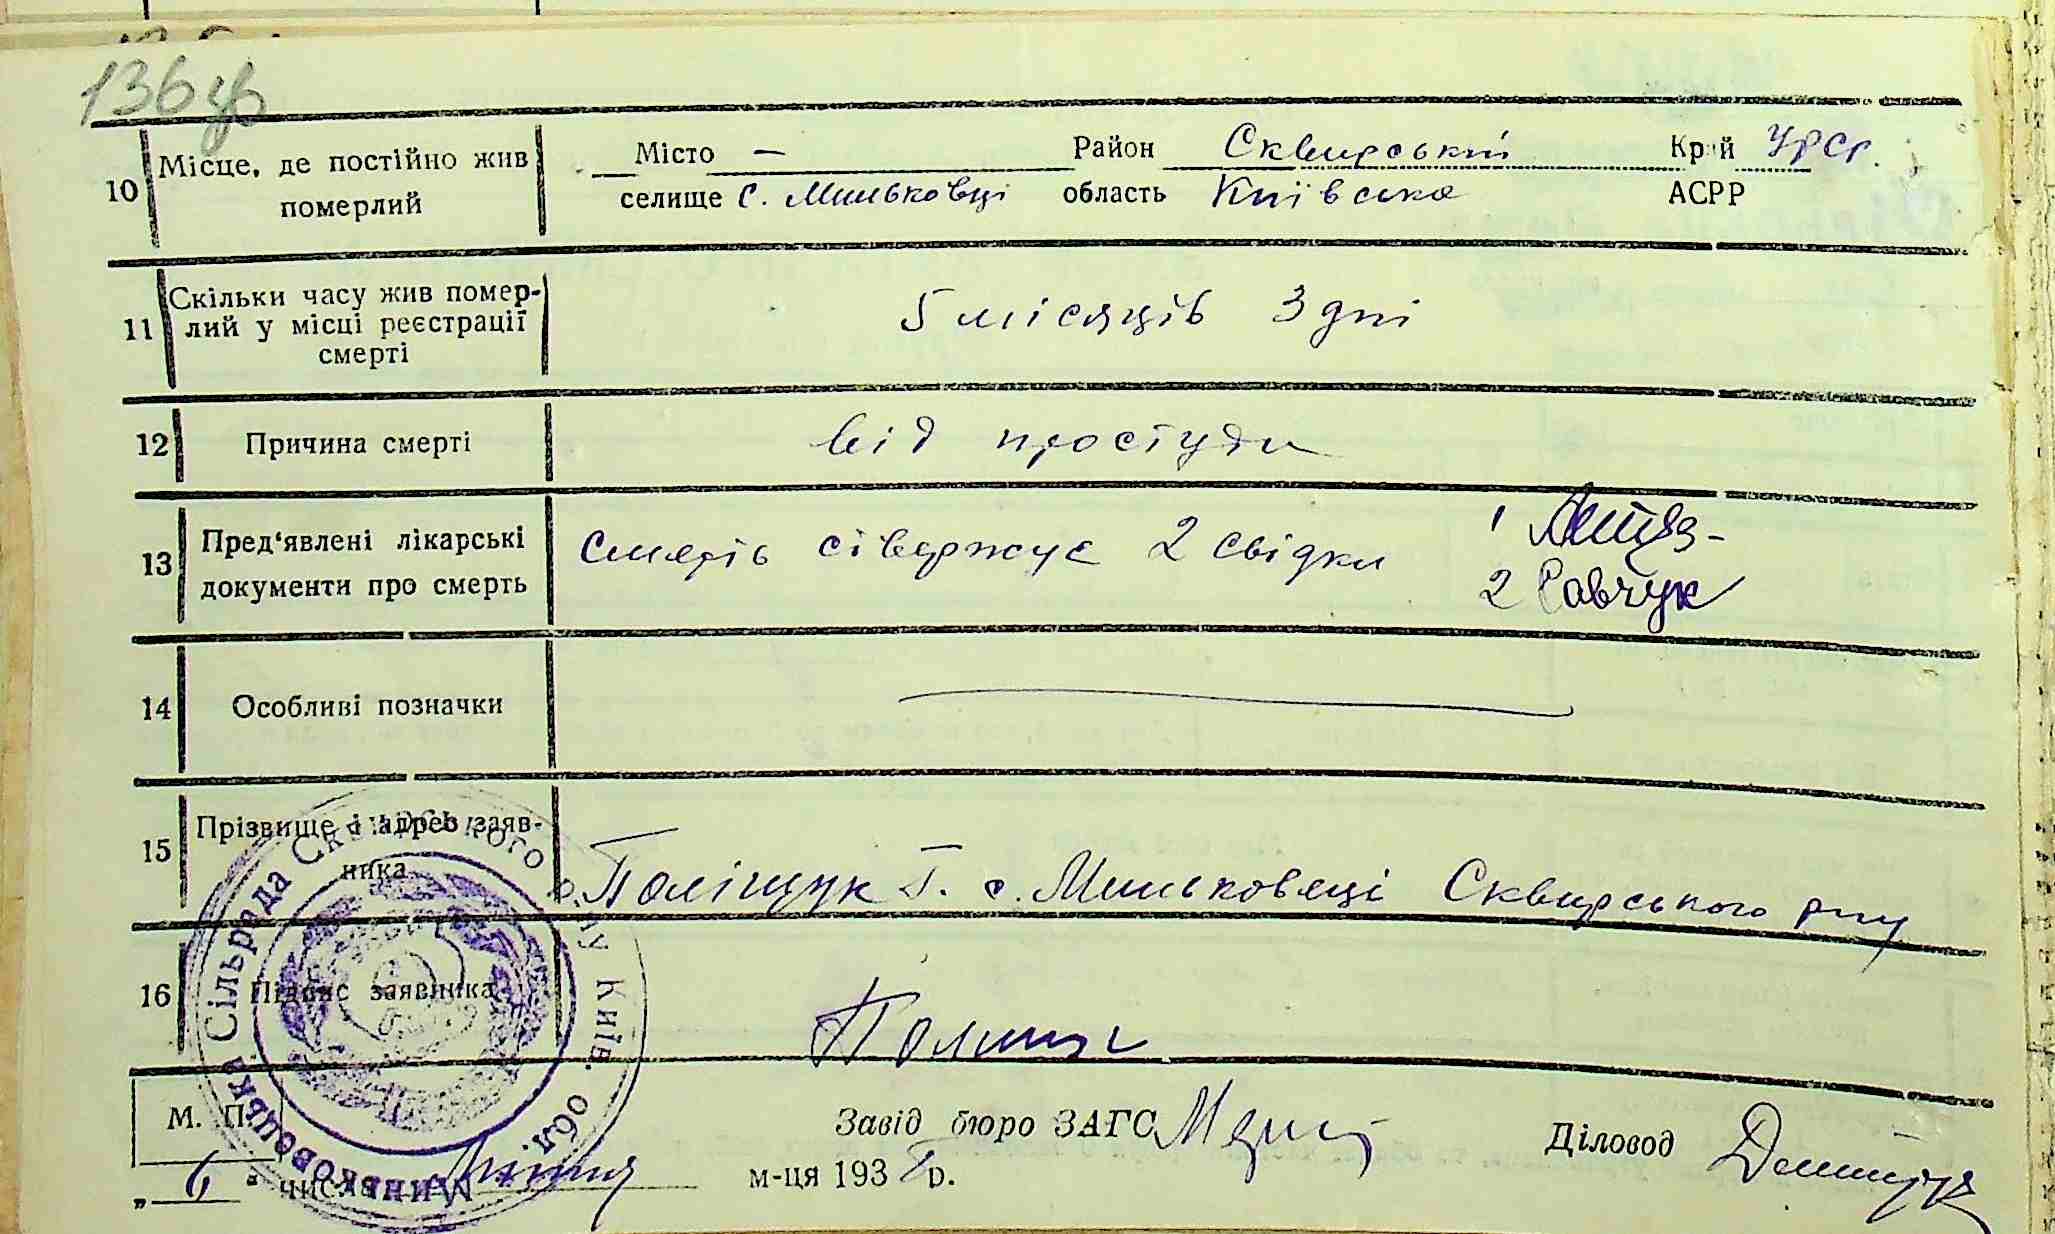 136
10 Місце, де постійно жив померлий
Місто — Район Сквирський Край УРСР.
селище с. Миньковці область Київська АСРР
11 Скільки часу жив помер-
лий у місці реєстрації
смерті
5 місяців 3 дні
12 Причина смерті
від простуди
13 Пред'явлені лікарські
документи про смерть
Смерть ствержує 2 свідки 1
2 Савчук
14 Особливі позначки
15 Прізвище і адрес заяв-
ника
Поліщук Г. с. Миньковеці Сквирського р-ну
16 Підпис заявника
М. П.
Завід бюро ЗАГС
Діловод
„ 6 " числа м-ця 193 р.
Миньковецька Сільрада Сквирського р-ну Київ. обл.